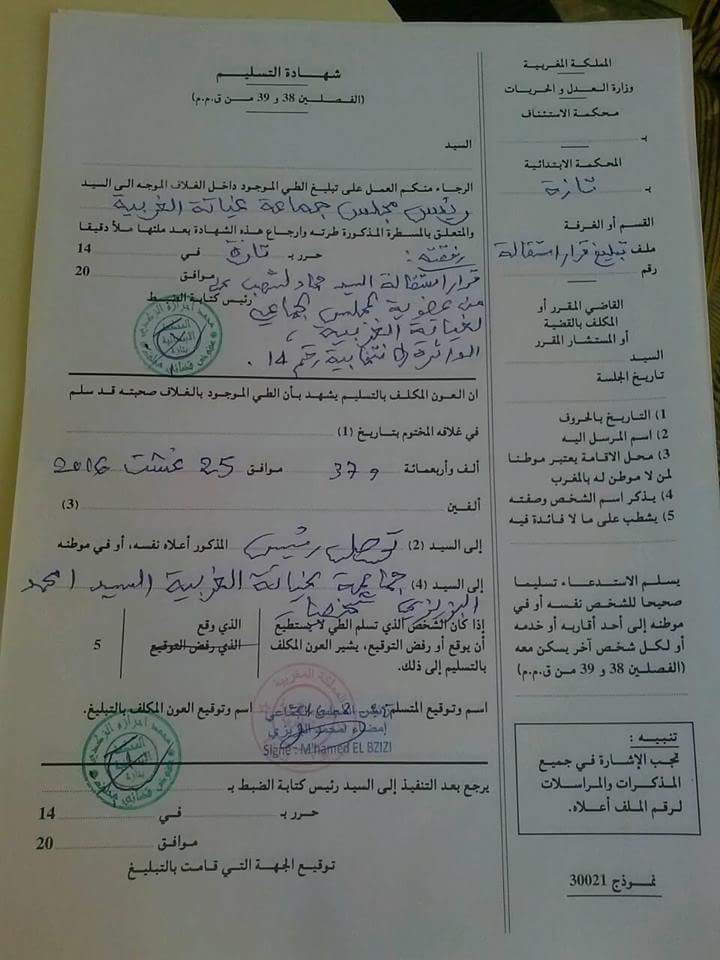 المملكة المغربية
وزارة العدل و الحريات
محكمة الاستئناف
بـ
المحكمة الابتدائية
بـ تازة
القسم أو الغرفة
ملف تبليغ قرار استقالة
رقم
القاضي المقرر أو
المكلف بالقضية
أو المستشار المقرر
السيد
تاريخ الجلسة
1) التاريخ بالحروف
2) اسم المرسل اليه
3) محل الاقامة يعتبر موطنا
لمن لا موطن له بالمغرب
4) يذكر اسم الشخص وصفته
5) يشطب على ما لا فائدة فيه
يسلم الاستدعاء تسليما
صحيحا للشخص نفسه أو في
موطنه إلى أحد أقاربه أو خدمه
أو لكل شخص آخر يسكن معه
(الفصلين 38 و 39 من ق.م.م)
تنبيه :
تجب الإشارة في جميع
المذكرات والمراسلات
لرقم الملف أعلاه.
نموذج 30021
شهادة التسليم
(الفصلين 38 و 39 من ق.م.م)
السيد
الرجاء منكم العمل على تبليغ الطي الموجود داخل الغلاف الموجه الى السيد
رئيس مجلس جماعة غياثة الغربية
والمتعلق بالمسطرة المذكورة طرته وارجاع هذه الشهادة بعد ملئها ملأ دقيقا
رفقته : حرر بـ تازة في 14
موافق 20
قرار استقالة السيد
رئيس كتابة الضبط
من عضوية المجلس الجماعي
لغياثة الغربية ،
الدائرة الانتخابية رقم 14 .
ان العون المكلف بالتسليم يشهد بأن الطي الموجود بالغلاف صحبته قد سلم
في غلافه المختوم بتاريخ (1)
ألف وأربعمائة و 37 موافق 25 غشت 2016
ألفين (3)
إلى السيد (2) توصل رئيس المذكور أعلاه نفسه، أو في موطنه
إلى السيد (4) جماعة غياثة الغربية السيد امحمد
البزيزي شخصيا
إذا كان الشخص الذي تسلم الطي لا يستطيع
أن يوقع أو رفض التوقيع، يشير العون المكلف
بالتسليم إلى ذلك.
الذي وقع
الذي رفض التوقيع
5
اسم وتوقيع المتسلم
اسم وتوقيع العون المكلف بالتبليغ.
رئيس المجلس الجماعي
إمضاء امحمد البزيزي
Signé : M'hamed EL BZIZI
يرجع بعد التنفيذ إلى السيد رئيس كتابة الضبط بـ
حرر بـ في 14
موافق 20
توقيع الجهة التي قامت بالتبليغ